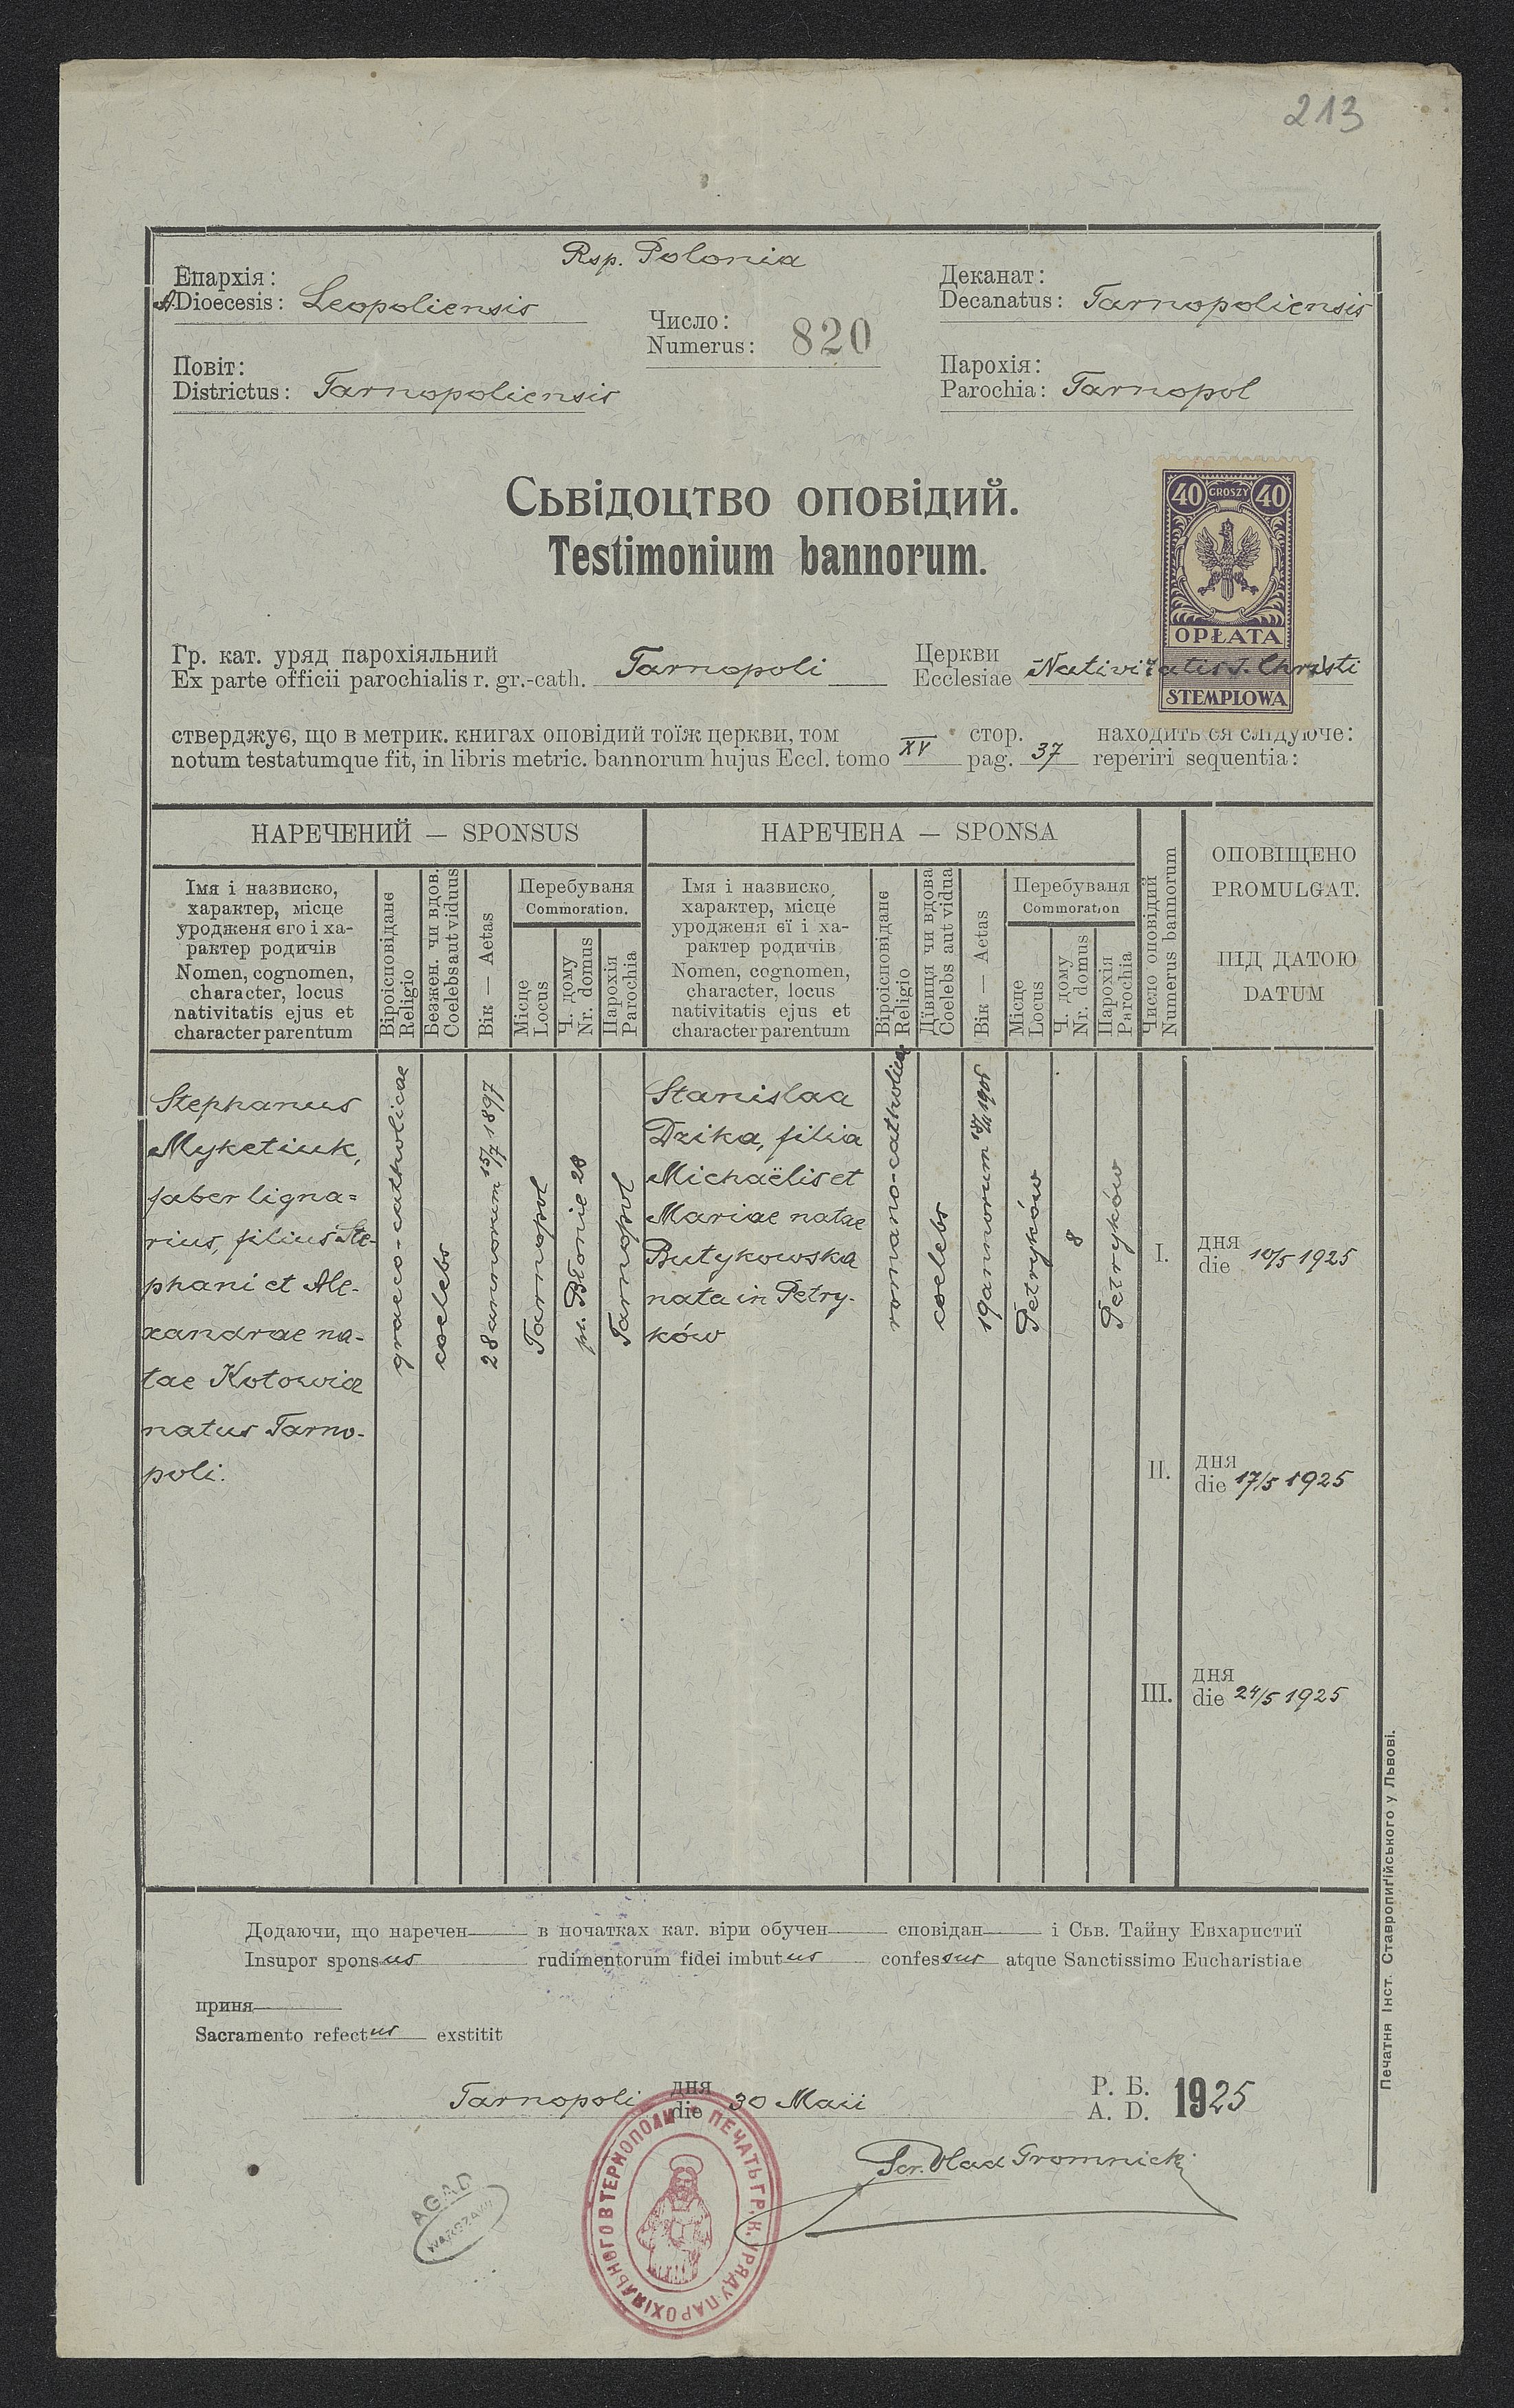 213
Rsp. Polonia
Епархія:
A.Dioecesis: Leopoliensis
Число:
Numerus: 820
Деканат:
Decanatus: Tarnopoliensis
Повіт:
Districtus: Tarnopoliensis
Парохія:
Parochia: Tarnopol
Сьвідоцтво оповідий.
Testimonium bannorum.
40 GROSZY 40
OPŁATA
STEMPLOWA
Гр. кат. уряд парохіяльний
Ex parte officii parochialis r. gr.-cath. Tarnopoli
Церкви
Ecclesiae Nativitatis J. Christi
стверджує, що в метрик. книгах оповідий тоїж церкви, том стор. находить ся слїдуюче:
notum testatumque fit, in libris metric. bannorum hujus Eccl. tomo XV pag. 37 reperiri sequentia:
НАРЕЧЕНИЙ — SPONSUS
Імя і назвиско,
характер, місце
уродженя єго і ха-
рактер родичів
Nomen, cognomen,
character, locus
nativitatis ejus et
character parentum
Віроісповіданє
Religio
Безжен. чи вдов.
Coelebs aut viduus
Вік — Aetas
Перебуваня
Commoration.
Місце
Locus
Ч. дому
Nr. domus
Парохія
Parochia
НАРЕЧЕНА — SPONSA
Імя і назвиско,
характер, місце
уродженя єї і ха-
рактер родичів
Nomen, cognomen,
character, locus
nativitatis ejus et
character parentum
Віроісповіданє
Religio
Дївиця чи вдова
Coelebs aut vidua
Вік — Aetas
Перебуваня
Commoration
Місце
Locus
Ч. дому
Nr. domus
Парохія
Parochia
Число оповідий
Numerus bannorum
ОПОВІЩЕНО
PROMULGAT.
ПІД ДАТОЮ
DATUM
Stephanus
Myketiuk,
faber ligna=
rius, filius Ste-
phani et Ale-
xandrae na-
tae Kotowicz
natus Tarno-
poli.
graeco-catholicae
coelebs
28 annorum 15/7 1897
Tarnopol
pr. Błonie 28
Tarnopol
Stanislaa
Dzika, filia
Michaëlis et
Mariae natae
Butykowska
nata in Petry-
ków
romano-catholicae
coelebs
19 annorum
Petryków
8
Petryków
I. дня
die 10/5 1925
II. дня
die 17/5 1925
III. дня
die 24/5 1925
Додаючи, що наречен в початках кат. віри обучен сповідан і Сьв. Тайну Евхаристиї
Insupor sponsus rudimentorum fidei imbutus confessus atque Sanctissimo Eucharistiae
приня
Sacramento refectus exstitit
Tarnopoli дня
die 30 Maii
Р. Б.
A. D. 1925
Scr. Vlad Gromnicki
ПЕЧАТЬ ГР. К. УРЯДУ ПАРОХІЯЛЬНОГО В ТЕРНОПОЛИ
AGAD
WARSZAWA
Печатня Інст. Ставропигійського у Львові.